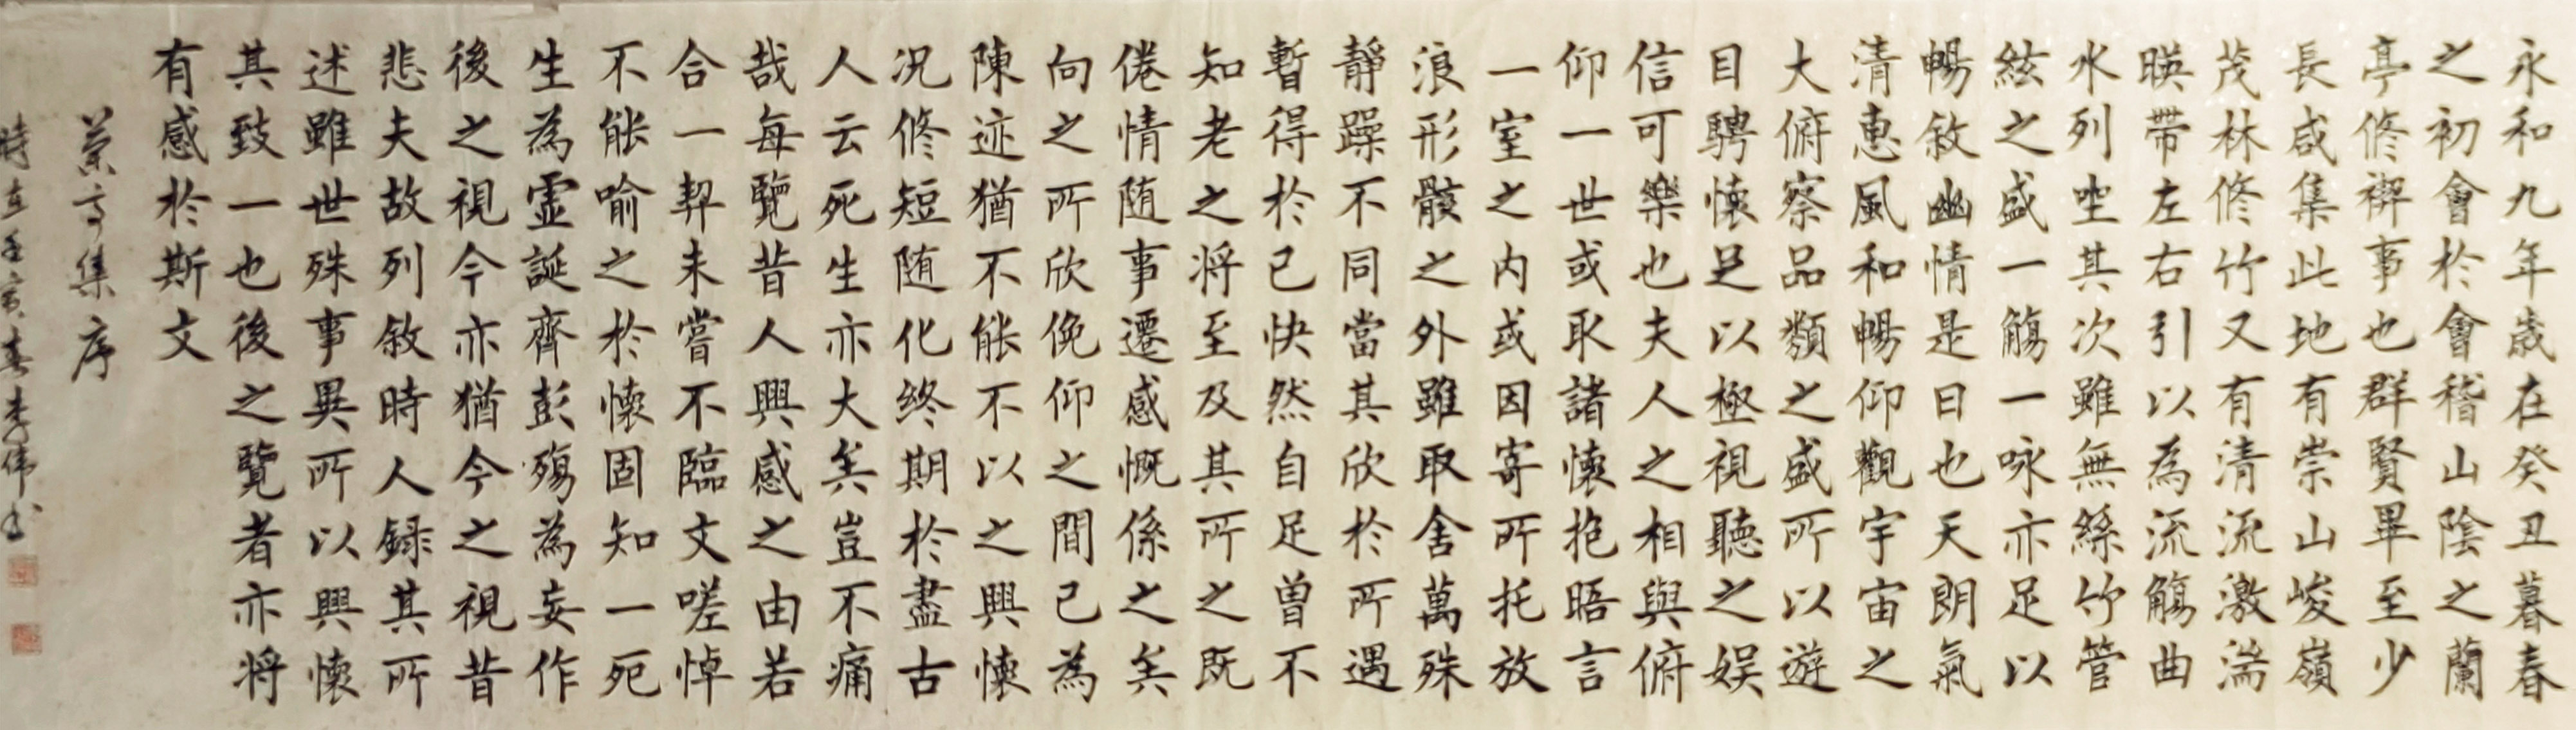 永和九年歲在癸丑暮春
之初會於會稽山陰之蘭
亭修禊事也群賢畢至少
長咸集此地有崇山峻嶺
茂林修竹又有清流激湍
暎帶左右引以為流觴曲
水列坐其次雖無絲竹管
絃之盛一觴一咏亦足以
暢敘幽情是日也天朗氣
清惠風和暢仰觀宇宙之
大俯察品類之盛所以遊
目騁懷足以極視聽之娛
信可樂也夫人之相與俯
仰一世或取諸懷抱晤言
一室之内或因寄所托放
浪形骸之外雖取舍萬殊
靜躁不同當其欣於所遇
暫得於己快然自足曽不
知老之将至及其所之既
倦情随事遷感慨係之矣
向之所欣俛仰之間已為
陳迹猶不能不以之興懷
况修短随化終期於盡古
人云死生亦大矣豈不痛
哉每覽昔人興感之由若
合一契未嘗不臨文嗟悼
不能喻之於懷固知一死
生為虛誕齊彭殤為妄作
後之視今亦猶今之視昔
悲夫故列敘時人録其所
述雖世殊事異所以興懷
其致一也後之覽者亦将
有感於斯文
蘭亭集序
時在壬寅春李偉书